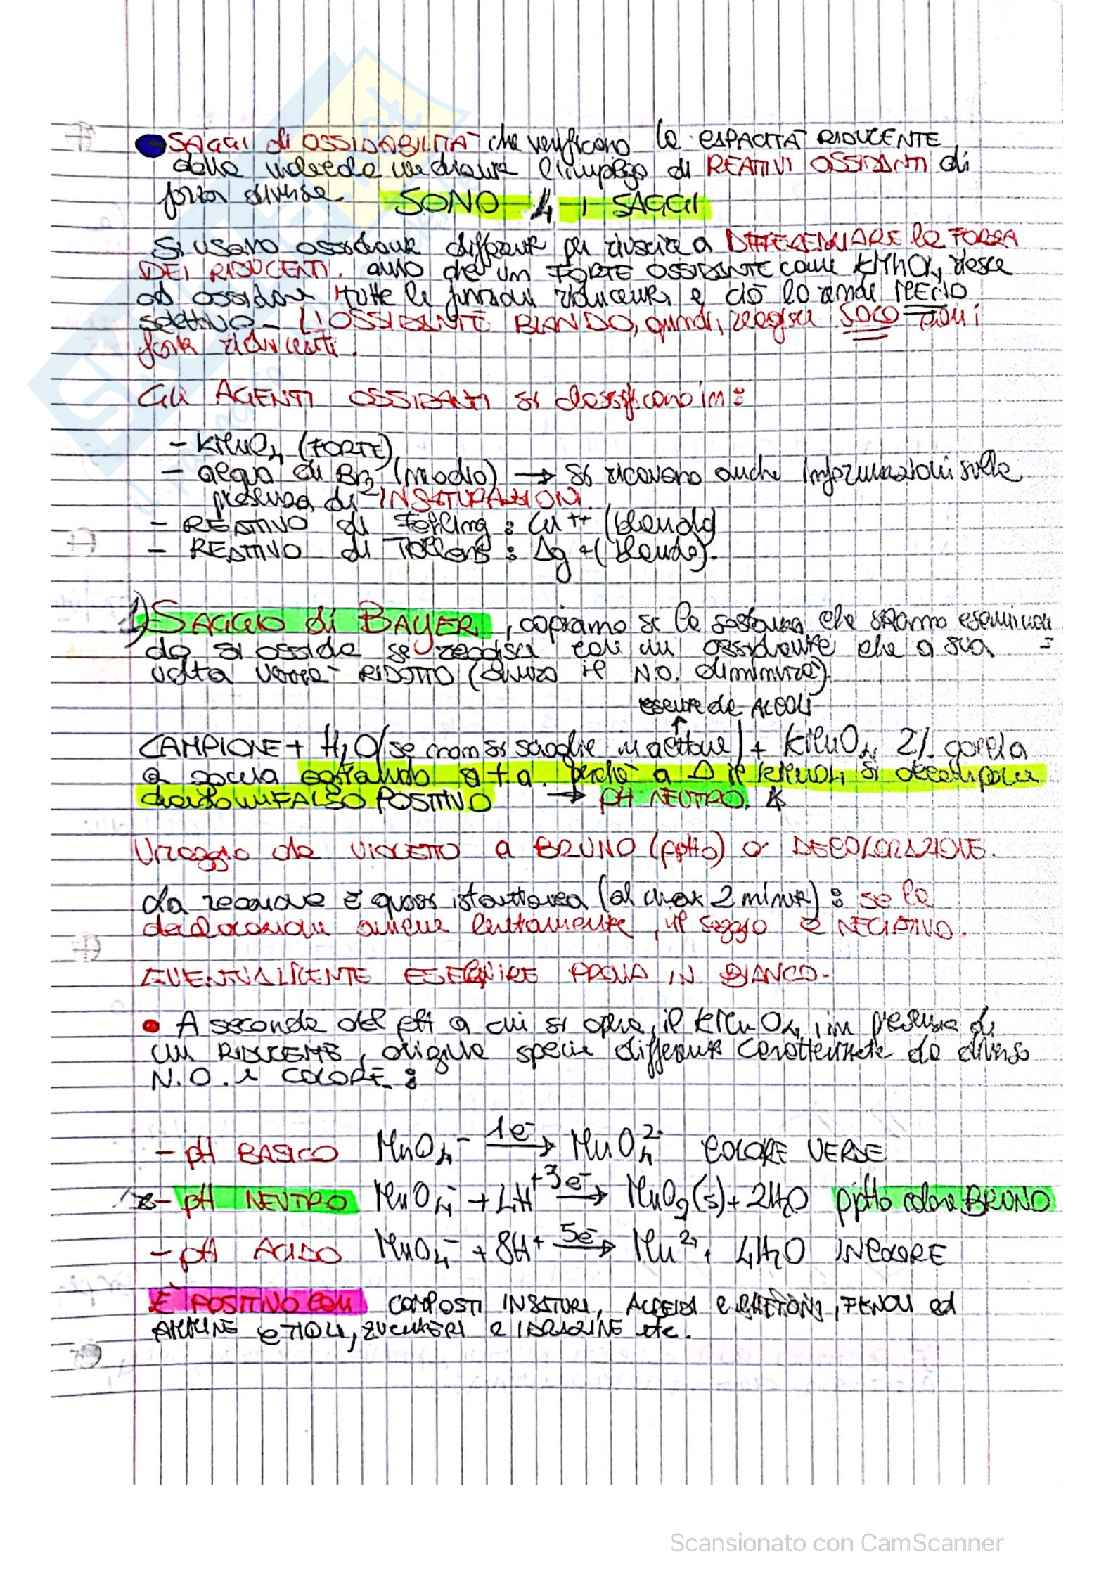 SAGGI di OSSIDABILITÀ che verificano la CAPACITÀ RIDUCENTE
della molecola mediante l'impiego di REATTIVI OSSIDANTI di
forza diversa. SONO 4 I SAGGI
Si usano ossidanti differenti per riuscire a DIFFERENZIARE la FORZA
DEI RIDUCENTI. che un FORTE OSSIDANTE come KMnO4 riesce
ad ossidare tutte le funzioni riducenti e ciò lo rende MENO
selettivo. L'OSSIDANTE BLANDO, quindi, reagisce SOLO con i
forti riducenti.
Gli AGENTI OSSIDANTI si classificano in:
- KMnO4 (FORTE)
- acqua di Br2 (medio) → si ricavano anche informazioni sulla
presenza di INSATURAZIONI.
- REATTIVO di Fehling: Cu++ (blando)
- REATTIVO di Tollens: Ag+ (blando).
1) SAGGIO di BAYER, capiamo se la sostanza che stiamo esaminan
do si ossida se reagisce con un ossidante che a sua
volta verrà RIDOTTO (ovvero il N.O. diminuirà).
esente da ALCOOLI
CAMPIONE + H2O (se non si scioglie in acetone) + KMnO4 2% goccia
a goccia a t.a. perché a Δ il KMnO4 si decompone
dando un FALSO POSITIVO → pH NEUTRO.
Viraggio da VIOLETTO a BRUNO (ppto) o DECOLORAZIONE.
La reazione è quasi istantanea (al max 2 minuti): se la
decolorazione avviene lentamente, il saggio è NEGATIVO.
EVENTUALMENTE ESEGUIRE PROVA IN BIANCO.
• A seconda del pH a cui si opera, il KMnO4, in presenza di
un RIDUCENTE, origina specie differenti caratterizzate da diverso
N.O. e COLORE:
- pH BASICO MnO4- 1e-→ MnO4 2- COLORE VERDE
- pH NEUTRO MnO4- + 4H+ 3e-→ MnO2(s) + 2H2O ppto colore BRUNO
- pH ACIDO MnO4- + 8H+ 5e-→ Mn2+ + 4H2O INCOLORE
È POSITIVO CON COMPOSTI INSATURI, ALDEIDI e CHETONI, FENOLI ed
AMMINE e TIOLI, ZUCCHERI e IDRAZINE etc.
Scansionato con CamScanner